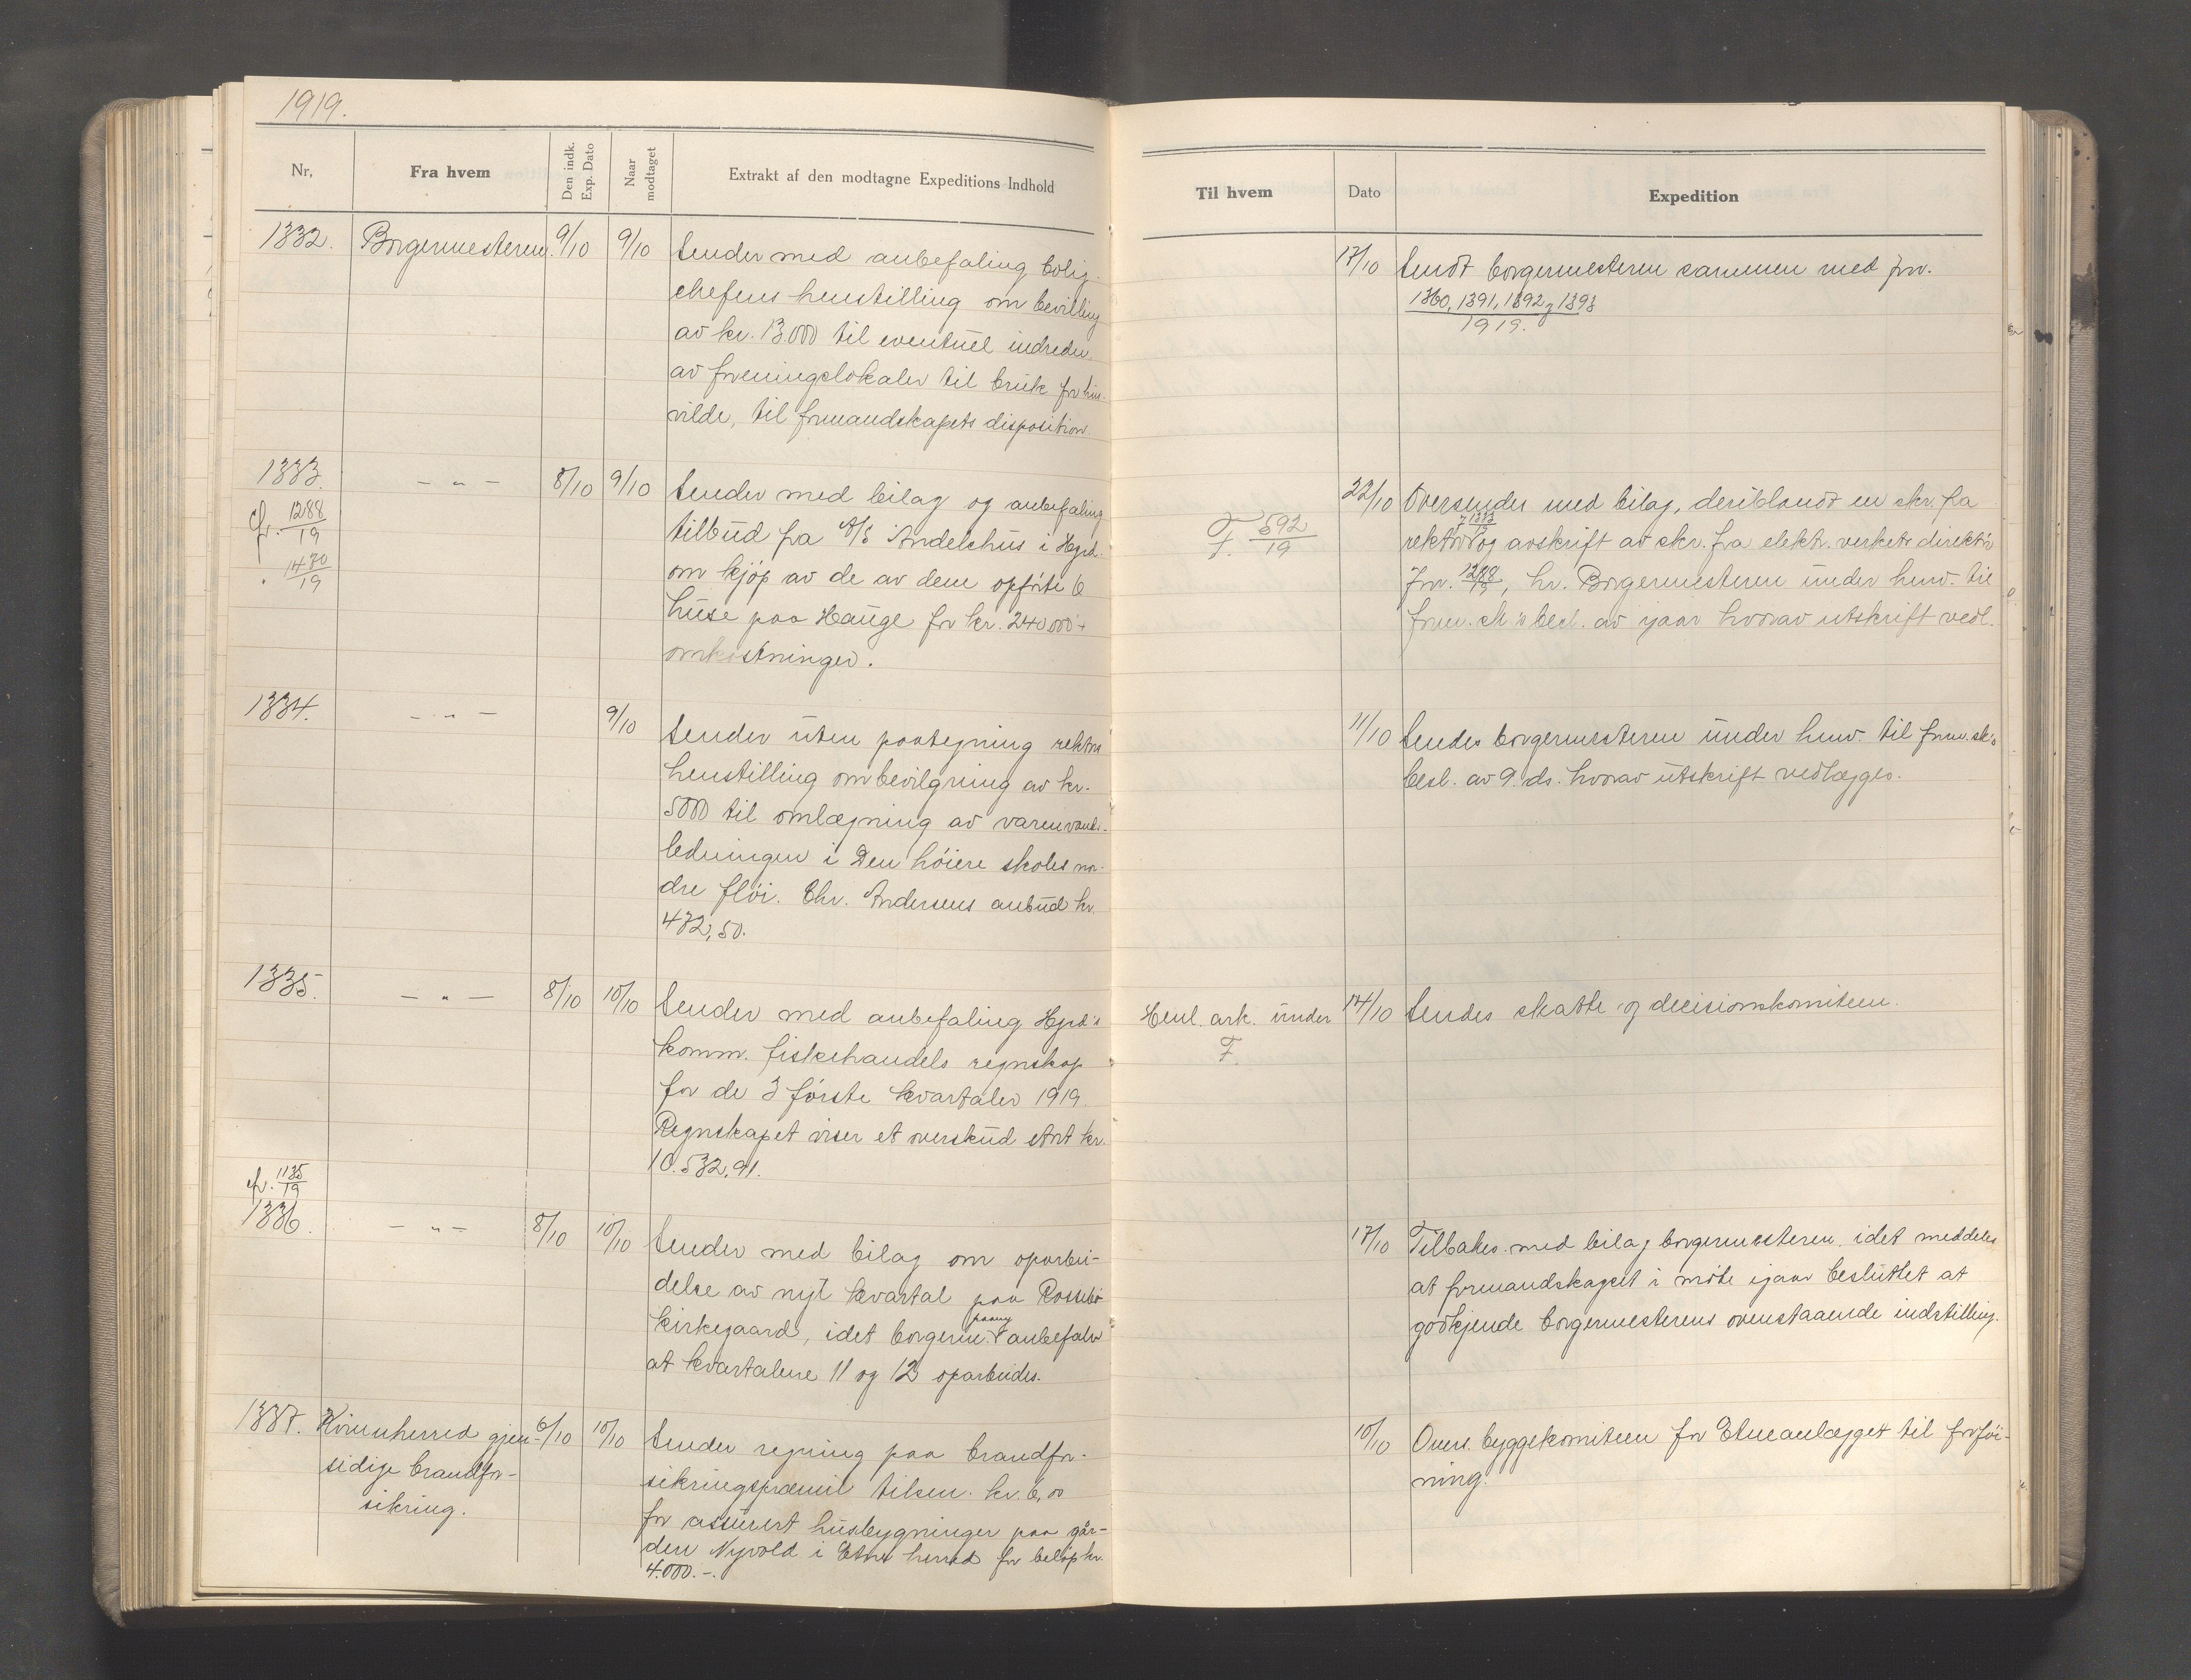 1919.
Nr.
Fra hvem
Den indk. Exp. Dato
Naar modtaget
Extrakt af den modtagne Expeditions Indhold
1332.
Borgermesteren.
9/10
9/10
Sender med anbefaling bolig-
chefens henstilling om bevillng
av kr. 13.000 til eventuel indredn.
av foreningslokaler til bruk for hus-
vilde, til formandskapets disposition.
1333.
cfr. 1288/19
1430/19
- " -
8/10
9/10
Sender med bilag og anbefaling
tilbud fra A/S Andelshus i Hgsd.
om kjöp av de av dem opförte 6
huse paa Hauge for kr. 240.000 +
omkostninger.
1334.
- " -
9/10
Sender uten paategning rektors
henstilling om bevilgning av kr.
5000 til omlægning av varmvands-
ledningen i Den höiere skoles nor-
dre flöi. Chr. Andersens anbud kr.
472,50.
1335.
- " -
8/10
10/10
Sender med anbefaling Hgsd's
komm. fiskehandels regnskap
for de 3 förste kvartaler 1919.
Regnskapet viser et overskud stort kr.
10.532,91.
cfr. 1135/19
1336.
- " -
8/10
10/10
Sender med bilag om oparbei-
delse av nyt kvartal paa Rossebö
kirkegaard, idet borgerm. paany anbefaler
at kvartalene 11 og 12 oparbeides.
1337.
Kvinnherred gjen-
sidige brandfor-
sikring.
6/10
10/10
Sender regning paa brandfor-
sikringspræmie tilsm. kr. 6,00
for assurert husbygninger paa går-
den Nyvold i Etne herred for belöp kr.
4.000.-.
Til hvem
Dato
Expedition
17/10
Sendt borgermesteren sammen med jnr.
1360, 1391, 1392 og 1393
1919.
F. 592/19
22/10
Oversender med bilag, deriblandt en skr. fra
rektor og avskrift av skr. fra elektr. verkets direktör
Jnr. 1288/19, hr. Borgermesteren under henv. til
form.sk's besl. av igaar hvorav utskrift vedl.
11/10
Sendes borgermesteren under henv. til form.sk's
besl. av 9. ds. hvorav utskrift vedlægges.
Henl. ark. under
F.
14/10
Sendes skatte og decisionskomiteen.
17/10
Tilbakes. med bilag borgermesteren, idet meddeles
at formandskapet i möte igaar besluttet at
godkjende borgermesterens ovenstaaende indstilling.
10/10
Overs. byggekomiteen for Etneanlægget til forföi-
ning.